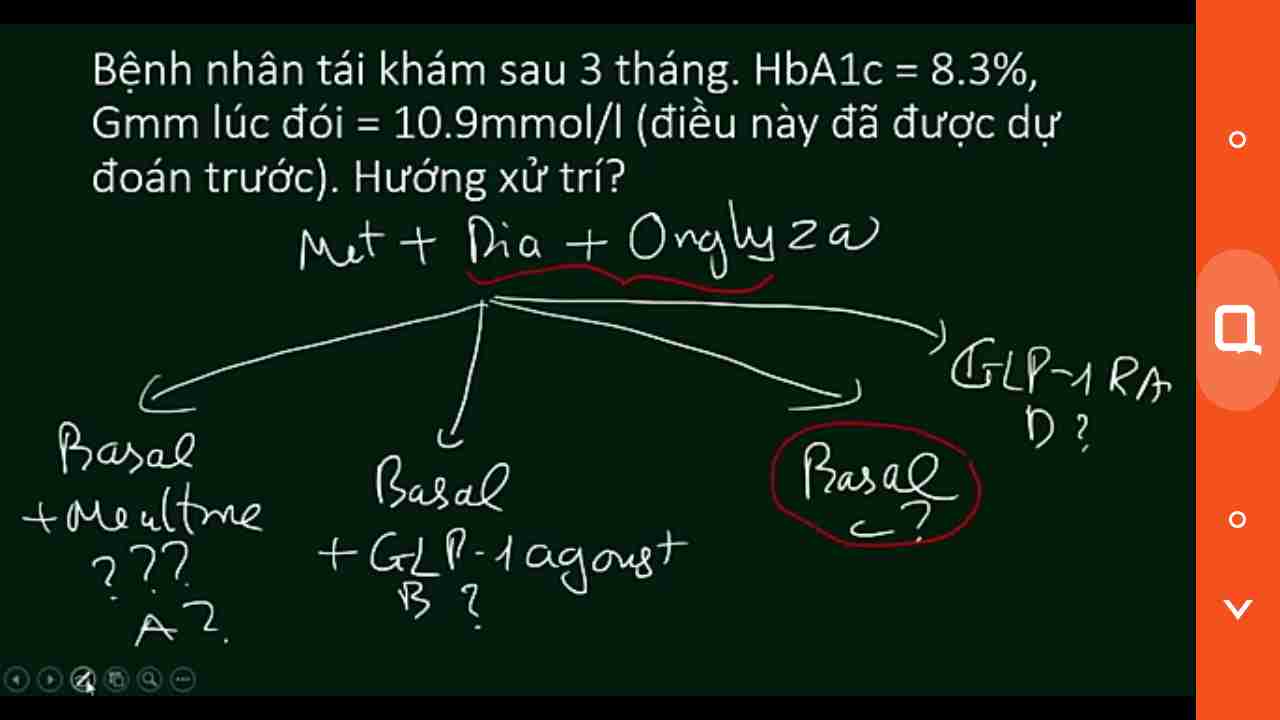 Bệnh nhân tái khám sau 3 tháng. HbA1c = 8.3%,
Gmm lúc đói = 10.9mmol/l (điều này đã được dự
đoán trước). Hướng xử trí?
Met + Dia + Onglyza
GLP-1 RA
D ?
Basal
+ Mealtime
???
A ?
Basal
+ GLP-1 agonist
B ?
Basal
C ?